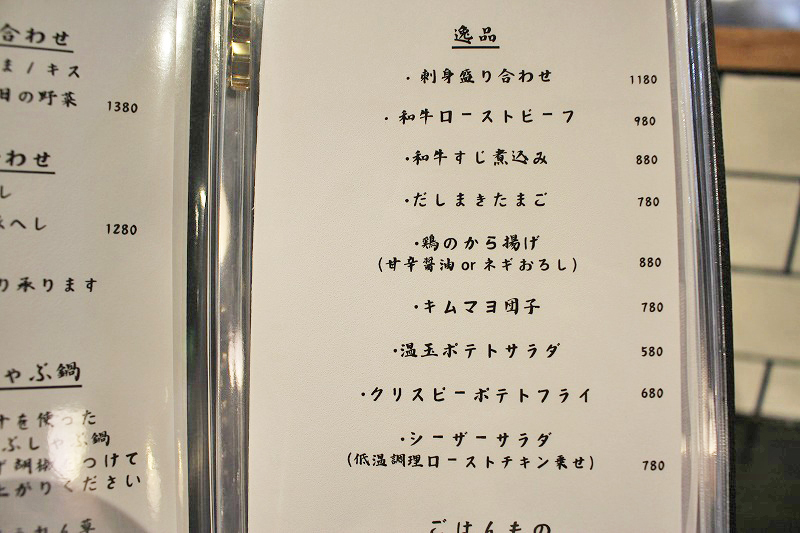 合わせ
ま / キス
の野菜 1380
わせ
し
へし 1280
り承ります
ゃぶ鍋
を使った
ぶしゃぶ鍋
胡椒 つけて
上がりください
逸品
・刺身盛り合わせ 1180
・和牛ローストビーフ 980
・和牛すじ煮込み 880
・だしまきたまご 780
・鶏のから揚げ
(甘辛醤油 or ネギおろし) 880
・キムマヨ団子 780
・温玉ポテトサラダ 580
・クリスピーポテトフライ 680
・シーザーサラダ
(低温調理ローストチキン乗せ) 780
ごはんもの